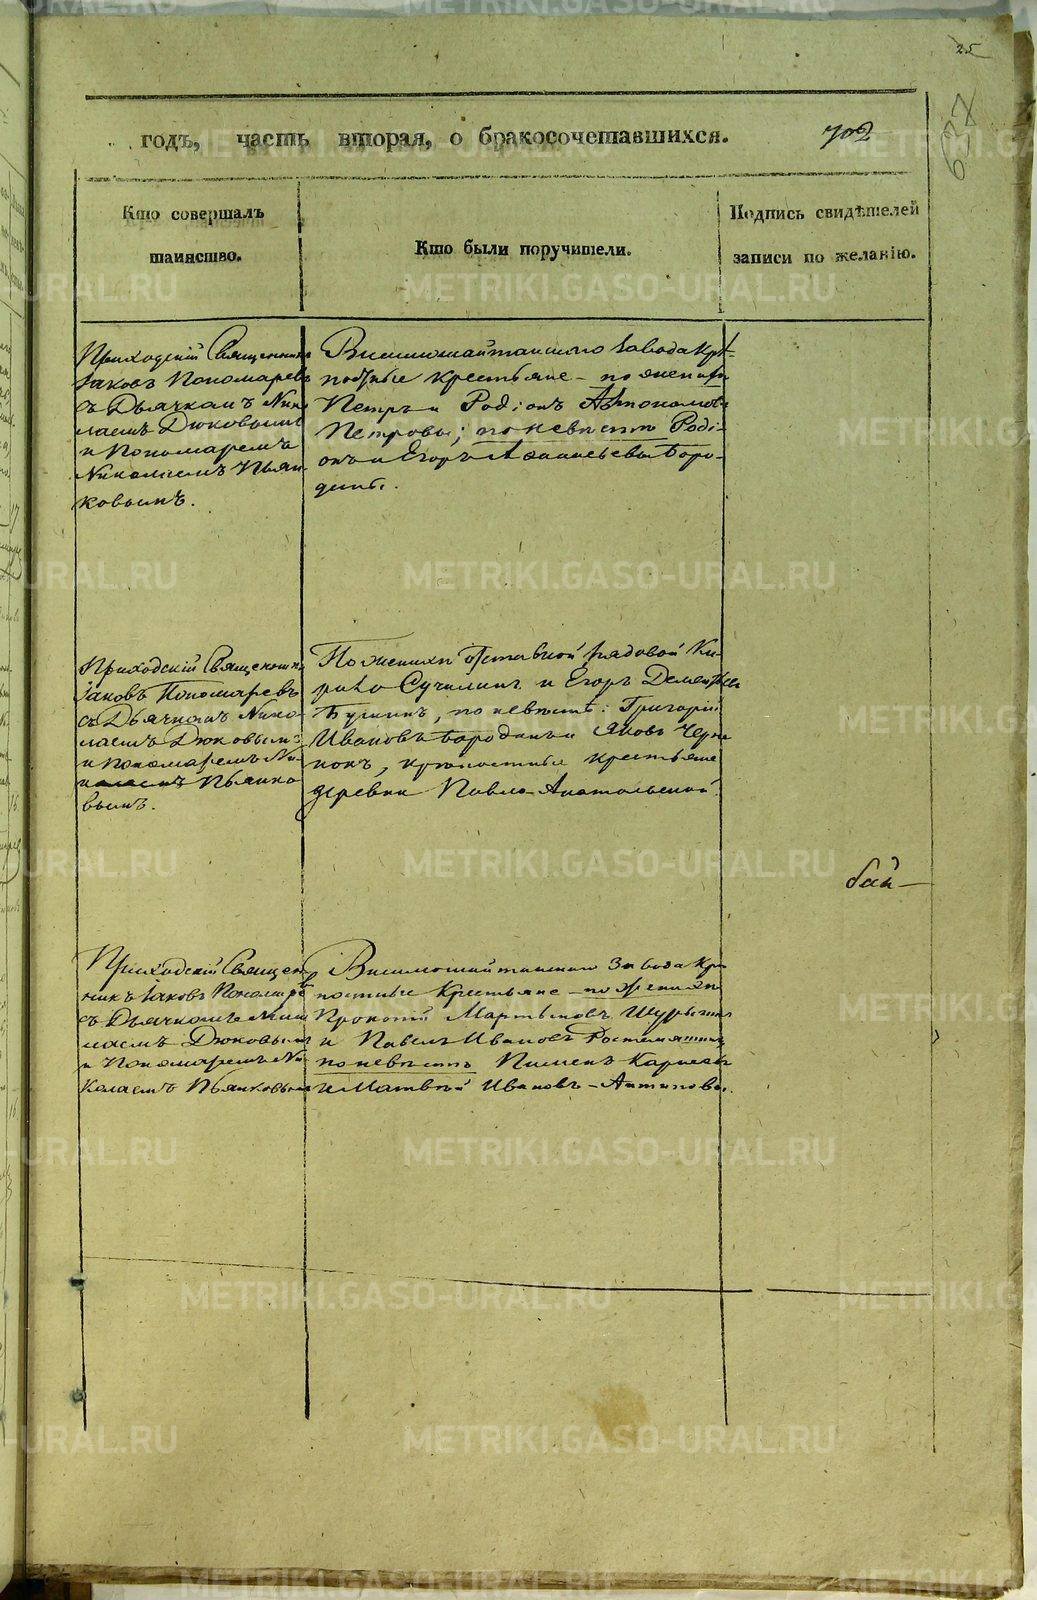 25
годъ, часть вторая, о бракосочетавшихся. 702
637
Кто совершалъ
таинство.
Кто были поручители.
Подпись свидѣтелей
записи по желанію.
Приходскій Священникъ
Іаковъ Пономаревъ
съ Дьячкомъ Нико
лаемъ Дюковымъ
и Пономаремъ
Николаемъ Пьян
ковымъ.
Висимошайтанскаго завода крѣ-
постные крестьяне - по женихѣ
Петръ и Родіонъ Автономовы
Петровы; по невѣстѣ Роді-
онъ и Егоръ Боро-
дины.
Приходскій Священникъ
Іаковъ Пономаревъ
съ Дьячкомъ Нико-
лаемъ Дюковымъ
и Пономаремъ Ни-
колаемъ Пьянко
вымъ.
По женихѣ отставной рядовой Ки-
рило Сучилинъ и Егоръ Дементьевъ
по невѣстѣ: Григорій
Ивановъ Бороданъ и Яковъ
крѣпостные крестьяне
деревни Павло-Анатольской.
бай-
Приходскій Священ
никъ Іаковъ Пономаревъ
съ Дьячкомъ Нико
лаемъ Дюковымъ
и Пономаремъ Ни
колаемъ Пьянковымъ
Висимошайтанскаго Завода Крѣ
постные Крестьяне - по женихѣ
Прокопій Мартыновъ
и Павелъ Ивановъ
по невѣстѣ Пименъ Карповъ
и Матвѣй Ивановъ - Антиповы.
METRIKI.GASO-URAL.RU